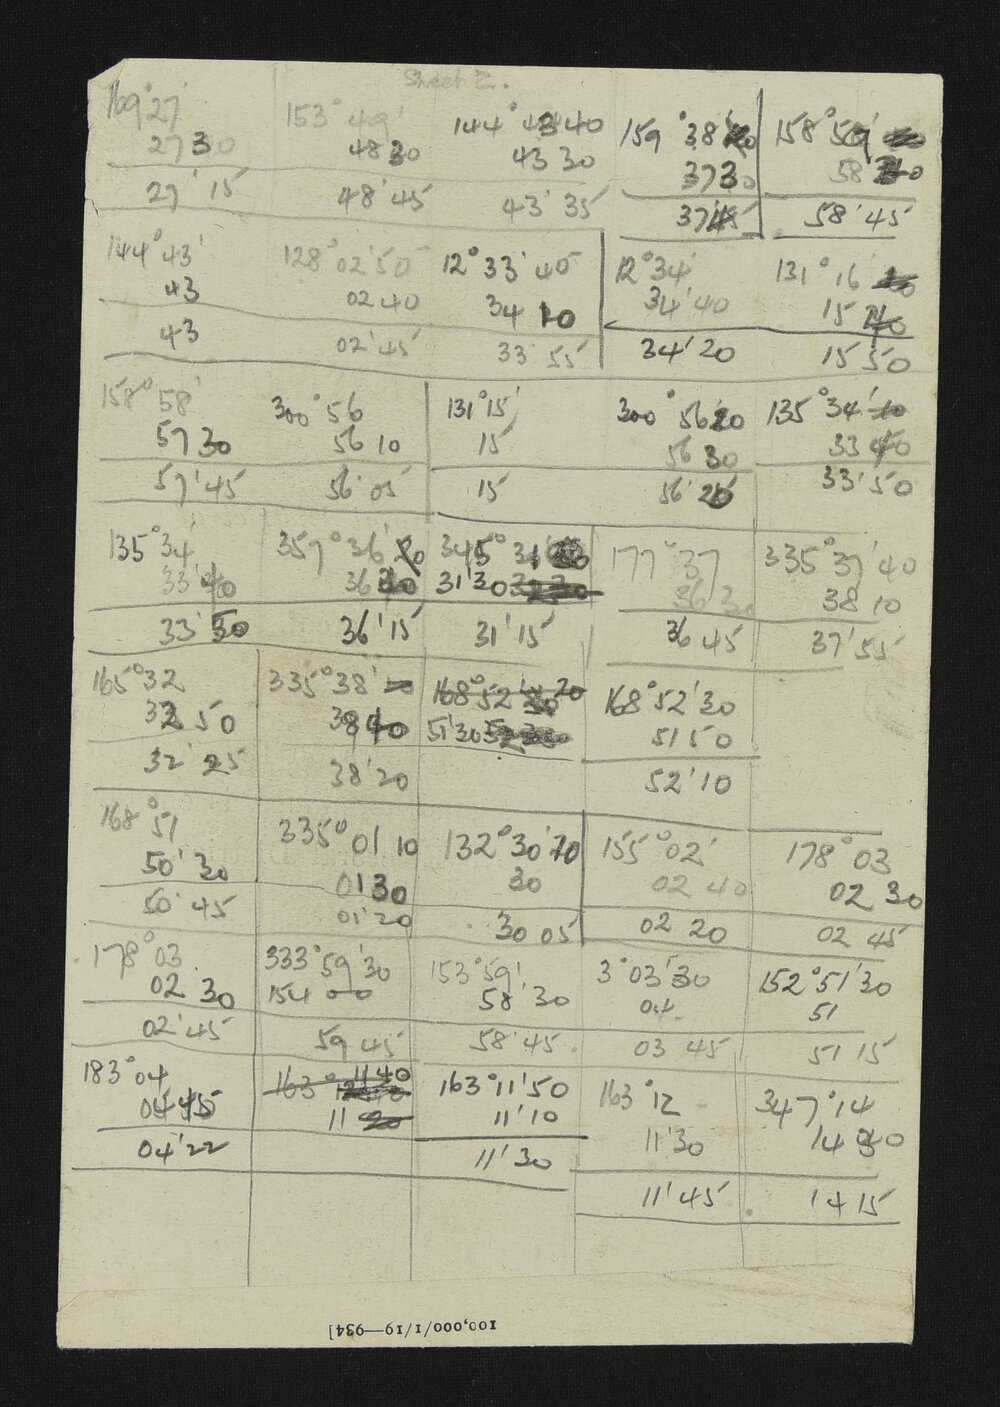 Sheet 2.
169°27'
2730
27'15
153°49'
4830
48'45
144°4340
4330
43'35
159°38'
3730
3745
158°59'
58'30
58'45
144°43'
43
43
128°02'50
0240
02'45
12°33'40
34 10
33'55
12°34'
34'40
34'20
131°16
15 40
15 50
158°58'
5730
57'45
300°56
56 10
56'05
131°15'
15
15
300°5620
56 30
56'25
135°34'
33 40
33'50
135°34'
33'40
33'50
357°36'
36 30
36'15
345°31
31'30
31'15
177°37
36 30
36 45
335°37'40
38 10
37'55
165°32
32 50
32'25
335°38'
38 40
38'20
168°52' 20
51'30
168°52'30
51 50
52'10
168°51
50'30
50'45
335°01 10
01 30
01'20
132°30'10
30
30 05
155°02'
02 40
02 20
178°03
02 30
02 45
178°03
02 30
02'45
333°59'30
154 00
59 45
153°59'
58'30
58'45
3°03'30
04
03 45
152°51'30
51
51 15
183°04
04 45
04'22
163° 11 40
11 20
163°11'50
11'10
11'30
163°12
11'30
11'45
347°14
14 30
14 15
100,000/1/19—934]